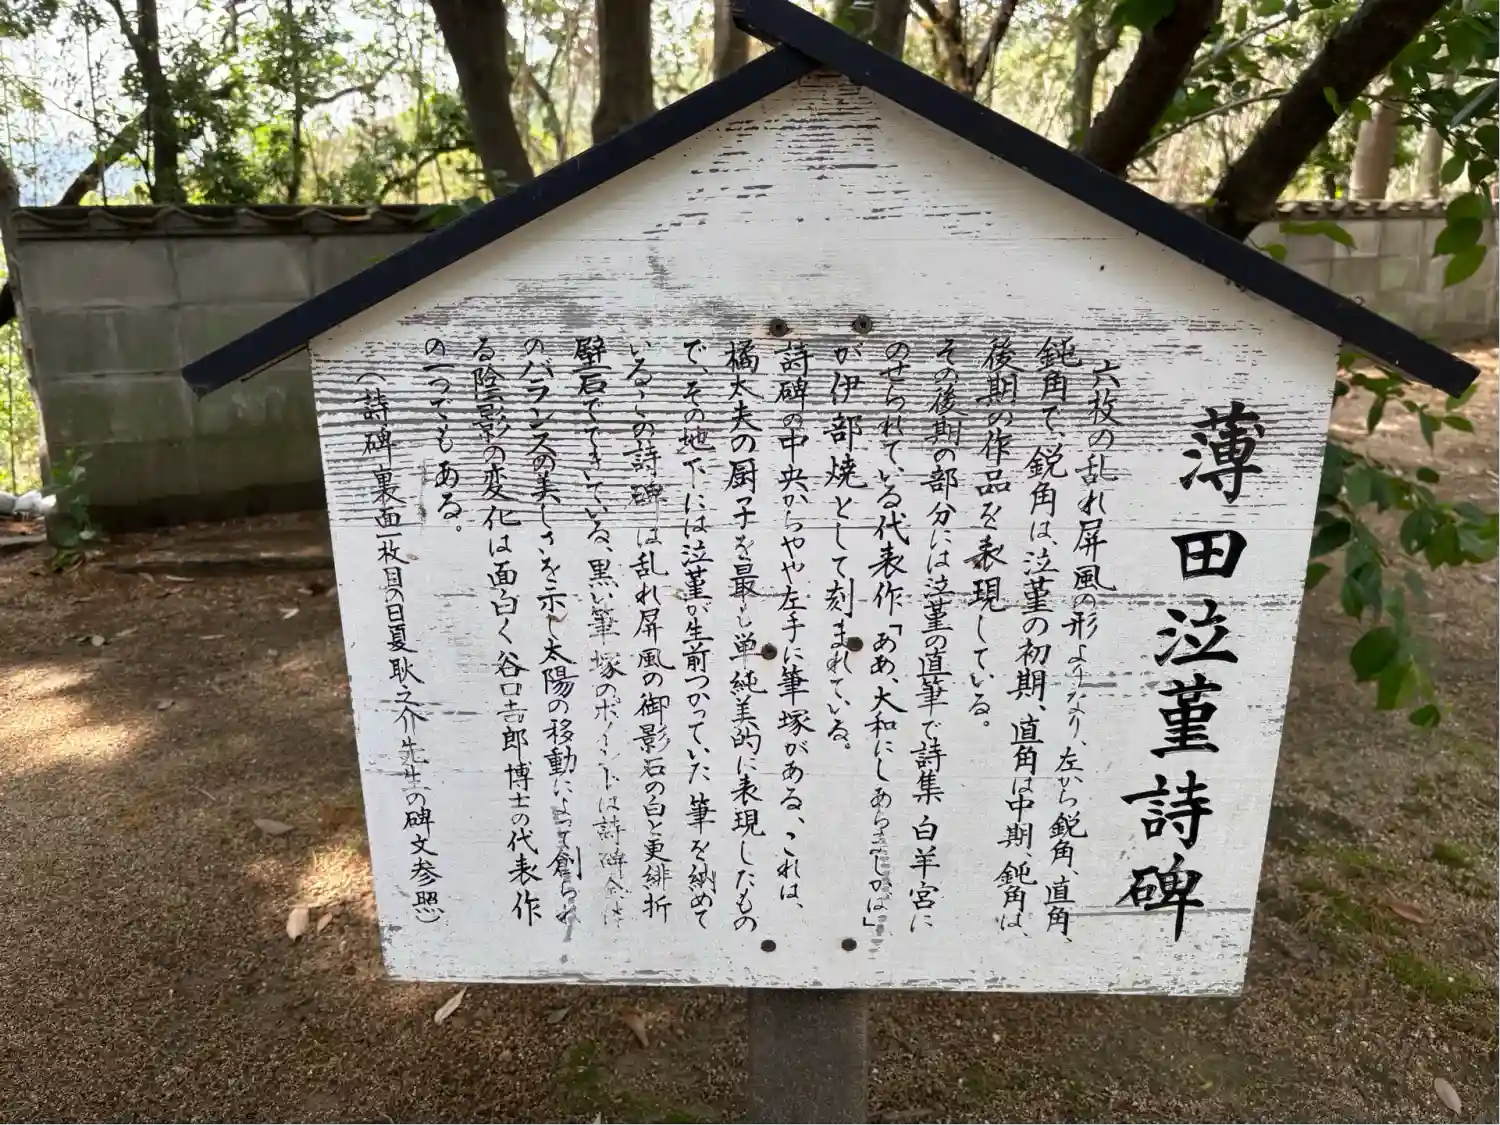 薄田泣菫詩碑
六枚の乱れ屏風の形よりなり、左から鋭角、直角、
鈍角で、鋭角は、泣菫の初期、直角は中期、鈍角は、
後期の作品を表現している。
その後期の部分には泣菫の直筆で詩集 白羊宮に
のせられている代表作「ああ、大和にしあらましかば」
が伊部焼として刻まれている。
詩碑の中央からやや左手に筆塚がある、これは、
橘太夫の厨子を最も単純美的に表現したもの
で、その地下には泣菫が生前つかっていた筆を納めて
いる、この詩碑は乱れ屏風の御影石の白と更緋折
壁石でできている、黒い筆塚のポイントは詩碑全体
のバランスの美しさを示し太陽の移動によって創られ
る陰影の変化は面白く谷口吉郎博士の代表作
の一つでもある。
(詩碑裏面一枚目の日夏耿之介先生の碑文参照)